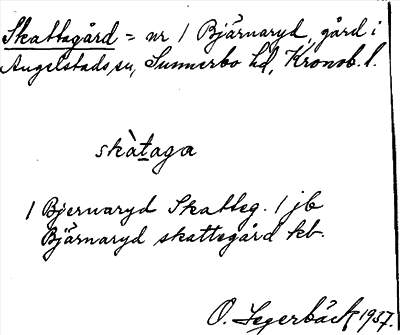 Skattegård = nr 1 Bjärnaryd, gård i
Angelstads sn, Sunnerbo hd, Kronob. l.
skàtaga
1 Bjernaryd Skatteg. 1 jb
Bjärnaryd skattegård kb.
O. Segerbäck 1937.